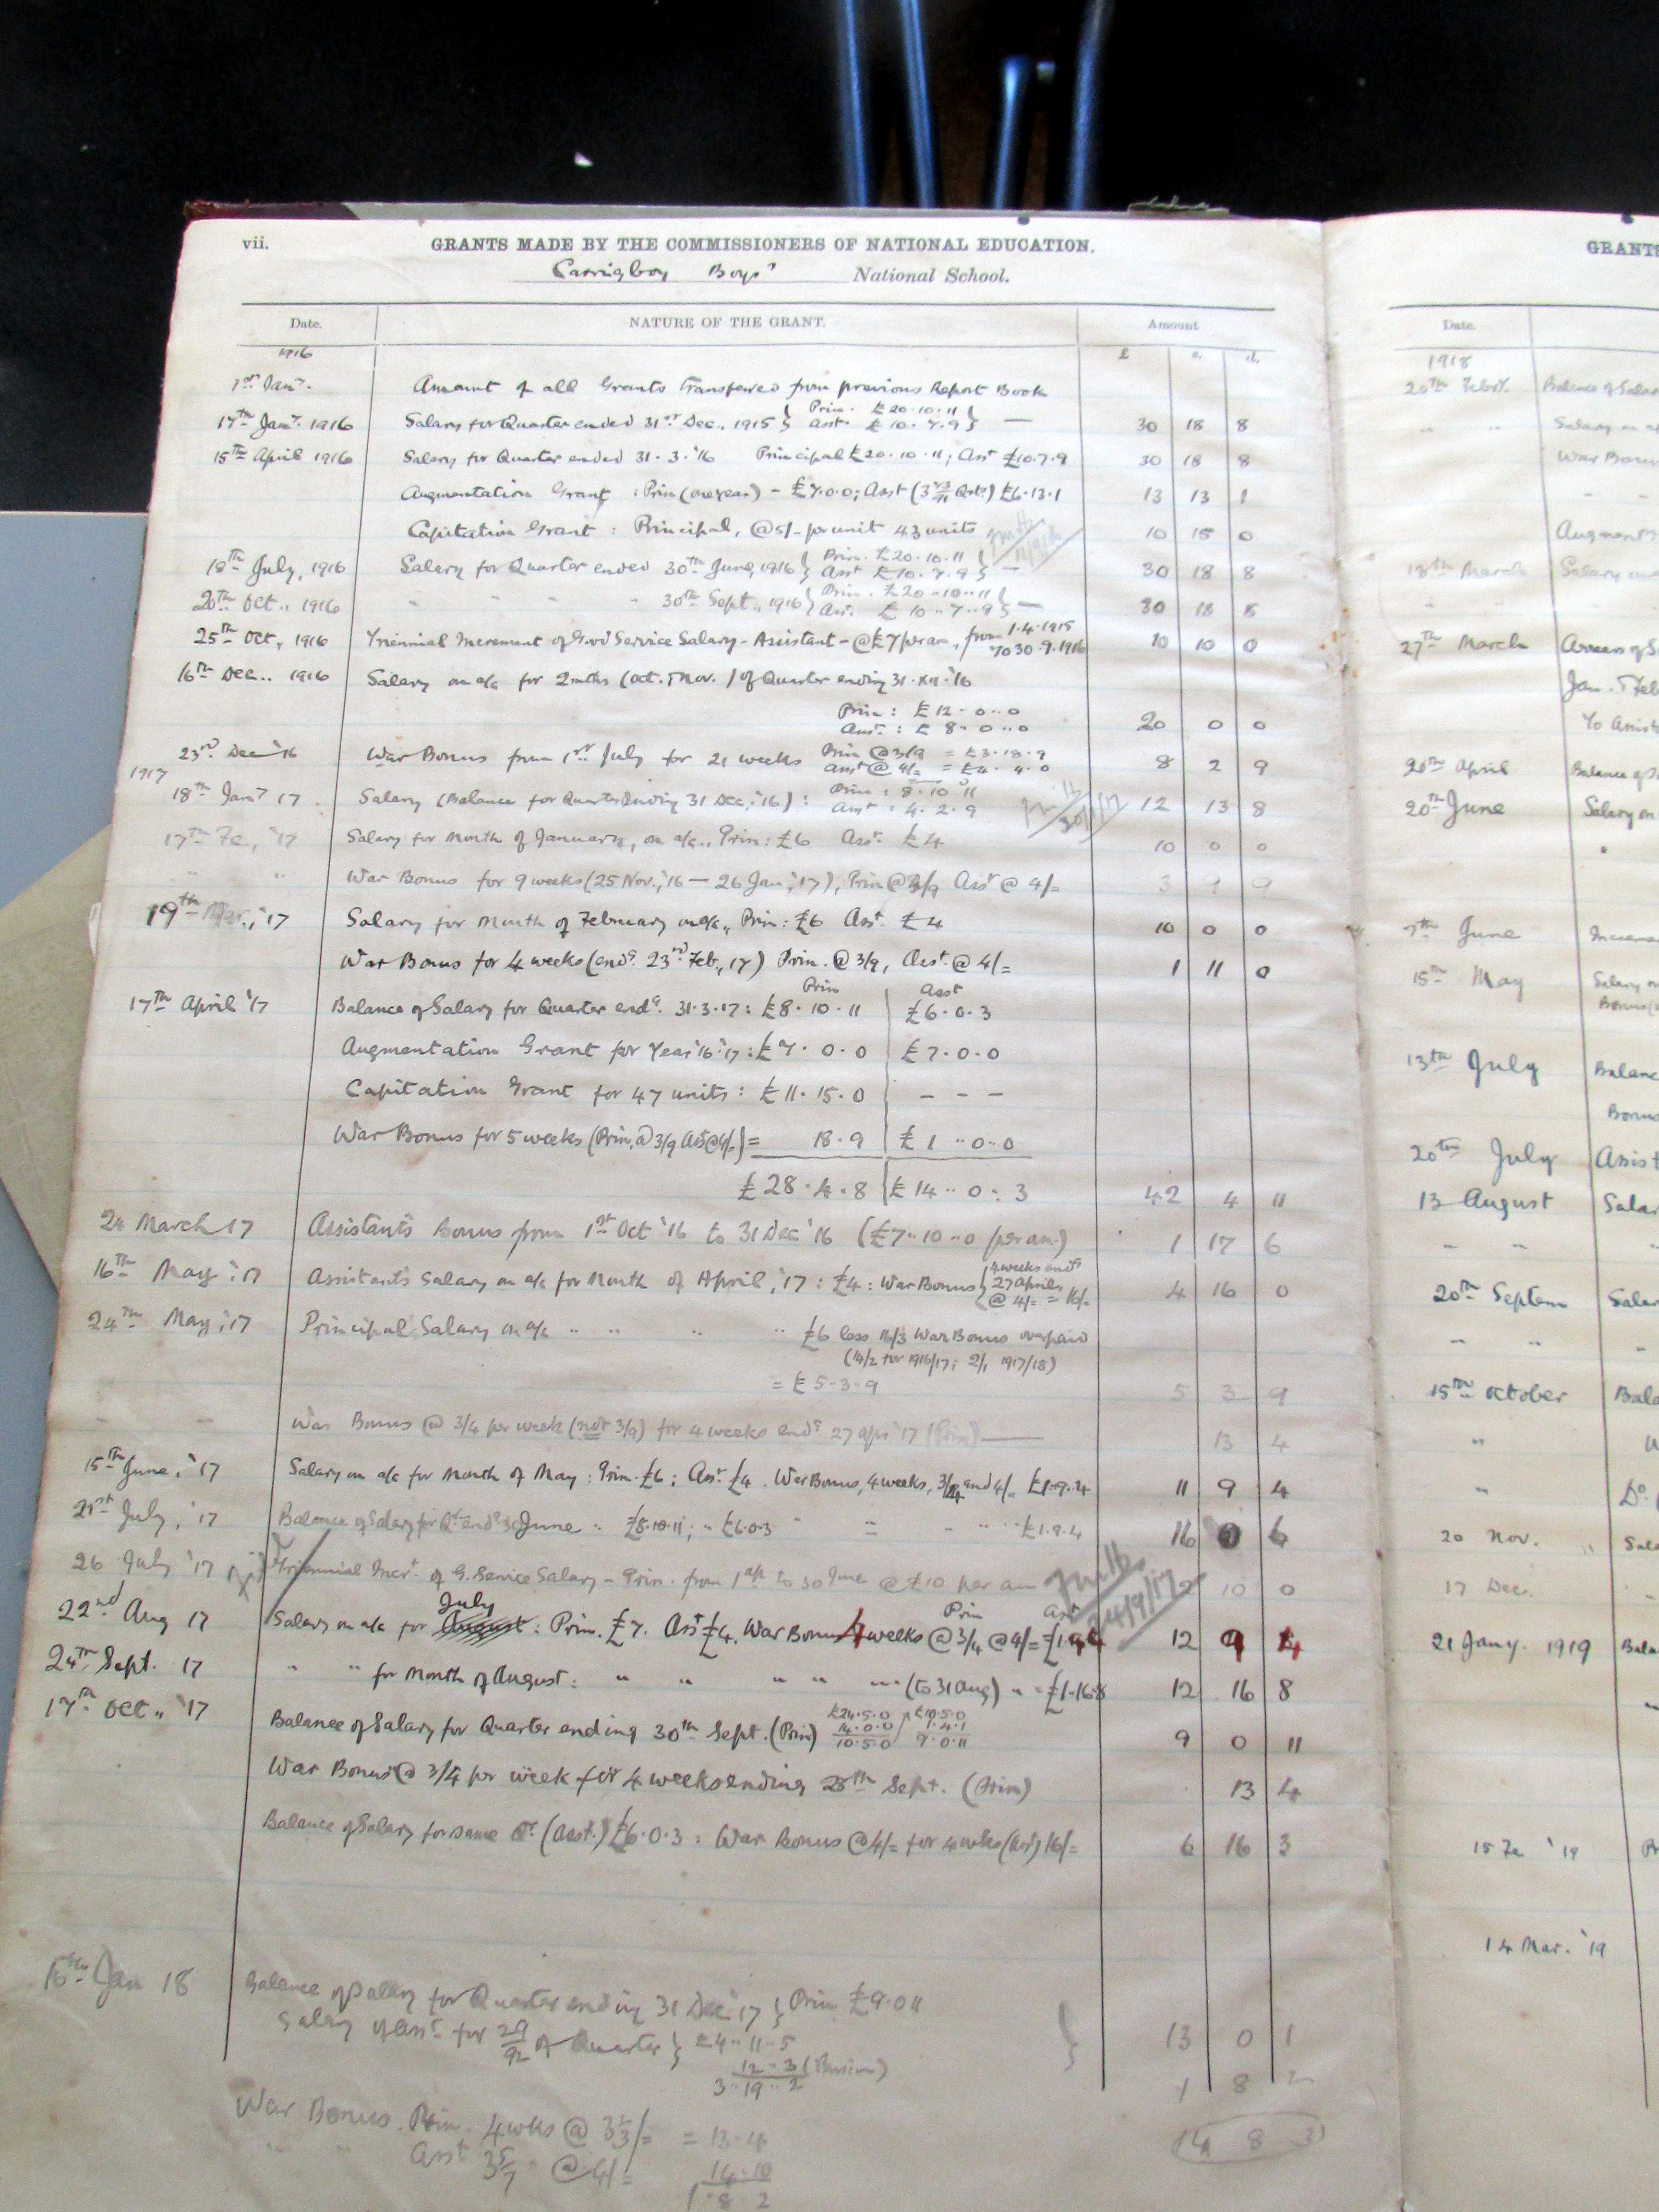 vii.
GRANTS MADE BY THE COMMISSIONERS OF NATIONAL EDUCATION.
Carrigboy Boys' National School.
Date. NATURE OF THE GRANT. Amount
1916 £ s. d.
1st Jany. Amount of all Grants transferred from previous Report Book
17th Jany. 1916 Salary for Quarter ended 31st Dec., 1915 } Prin. £20.10.11 Asst. £10.7.9 } — 30 18 8
15th April 1916 Salary for Quarter ended 31.3.'16 Principal £20.10.11; Asst £10.7.9 30 18 8
Augmentation Grant : Prin (one year) - £7.0.0; Asst £6.13.1 13 13 1
Capitation Grant : Principal, @5/- per unit 43 units 10 15 0
18th July, 1916 Salary for Quarter ended 30th June, 1916 } Prin. £20.10.11 Asst £10.7.9 } — 30 18 8
20th Oct., 1916 " " " 30th Sept., 1916 } Prin. £20..10..11 Asst. £10..7..9 } — 30 18 8
25th Oct, 1916 Triennial Increment of Good Service Salary - Assistant - @ £7 per an., from 1.4.1915 to 30.9.1916 10 10 0
16th Dec.. 1916 Salary on a/c for 2 mths (Oct. & Nov.) of Quarter ending 31.XII.'16
Prin : £12..0..0
Asst. : £8..0..0 20 0 0
23rd Dec '16 War Bonus from 1st July for 21 weeks Prin @ 3/9 = £3.18.9 Asst @ 4/= = £4.4.0 8 2 9
1917
18th Jany 17 Salary (Balance for Quarter Ending 31 Dec, '16) : Prin : 8.10.11 Asst : 4.2.9 12 13 8
17th Fe., '17 Salary for Month of January, on a/c., Prin: £6 Asst. £4 10 0 0
" " War Bonus for 9 weeks (25 Nov., '16 — 26 Jan, '17), Prin @ 3/9 Asst @ 4/= 3 9 9
19th Mar., '17 Salary for Month of February on a/c., Prin: £6 Asst. £4 10 0 0
War Bonus for 4 weeks (endg. 23rd Feb., 17) Prin. @ 3/9, Asst. @ 4/= 1 11 0
Prin Asst
17th April '17 Balance of Salary for Quarter endg. 31.3.17: £8.10.11 £6.0.3
Augmentation Grant for Year '16-'17: £7.0.0 £7.0.0
Capitation Grant for 47 units : £11.15.0 - - -
War Bonus for 5 weeks (Prin, @ 3/9 Asst @ 4/=) = 18.9 £1..0..0
£28.4.8 £14..0..3 42 4 11
24 March 17 Assistant's Bonus from 1st Oct '16 to 31 Dec '16 (£7..10..0 per an.) 1 17 6
16th May '17 Assistant's Salary on a/c for Month of April, '17 : £4 : War Bonus } 4 weeks endg 27 April @ 4/= = 16/- 4 16 0
24th May '17 Principal, Salary on a/c " " " " £6 less 16/3 War Bonus overpaid
(14/2 for 1916/17; 2/1 1917/18)
= £5-3-9 5 3 9
" " War Bonus @ 3/4 per week (not 3/9) for 4 weeks endg 27 Apr '17 (Prin) — 13 4
15th June, '17 Salary on a/c for Month of May : Prin. £6 ; Asst. £4. War Bonus, 4 weeks, 3/4 and 4/- £1.9.4 11 9 4
21st July, '17 Balance of Salary for Qr. endg 30 June : £8.10.11; " £6.0.3 " = " " £1.9.4 16 0 6
26 July '17 Triennial Incrt. of G. Service Salary - Prin. from 1 Apr to 30 June @ £10 per an 2 10 0
July Prin Asst
22nd Aug 17 Salary on a/c for August : Prin. £7. Asst £4. War Bonus 4 weeks @ 3/4 @ 4/= £1.9.4 12 9 4
24th Sept. 17 " " for Month of August : " " " " " (to 31 Aug) " = £1.16.8 12 16 8
17th Oct., '17 Balance of Salary for Quarter ending 30th Sept. (Prin) £24.5.0 14.0.0 10.5.0 / £10.5.0 1.4.1 9.0.11 9 0 11
War Bonus @ 3/4 per week for 4 weeks ending 28th Sept. (Prin) 13 4
Balance of Salary for same Qr. (Asst.) £6.0.3 : War Bonus @ 4/= for 4 wks (Asst) 16/= 6 16 3
16th Jan 18 Balance of Salary for Quarter ending 31 Dec '17 } Prin £9.0.11
Salary of Asst. for 29/92 of Quarter } £4..11..5 } 13 0 1
12..3
3..19..2 1 8 2
War Bonus. Prin. 4 wks @ 3 1/3/= = 13.4 14 8 3
" " Asst 3 5/7 @ 4/= 14.10
1.8.2
GRANTS
Date.
1918
20th Feby. Balance of Salar
" " Salary on a
War Bonus
Augment
18th March Salary
27th March Arrears of S
Jan. & Feb
To Assist
20th April Balance of
20th June Salary on
7th June Increme
15th May Salary on
Bonus
13th July Balanc
Bonus
20th July Assist
13 August Salar
20th Septem Salar
15th October Bala
" W
" Do.
20 Nov. Sala
17 Dec.
21 Jany. 1919 Bala
15 Fe '19 Pr
14 Mar. '19